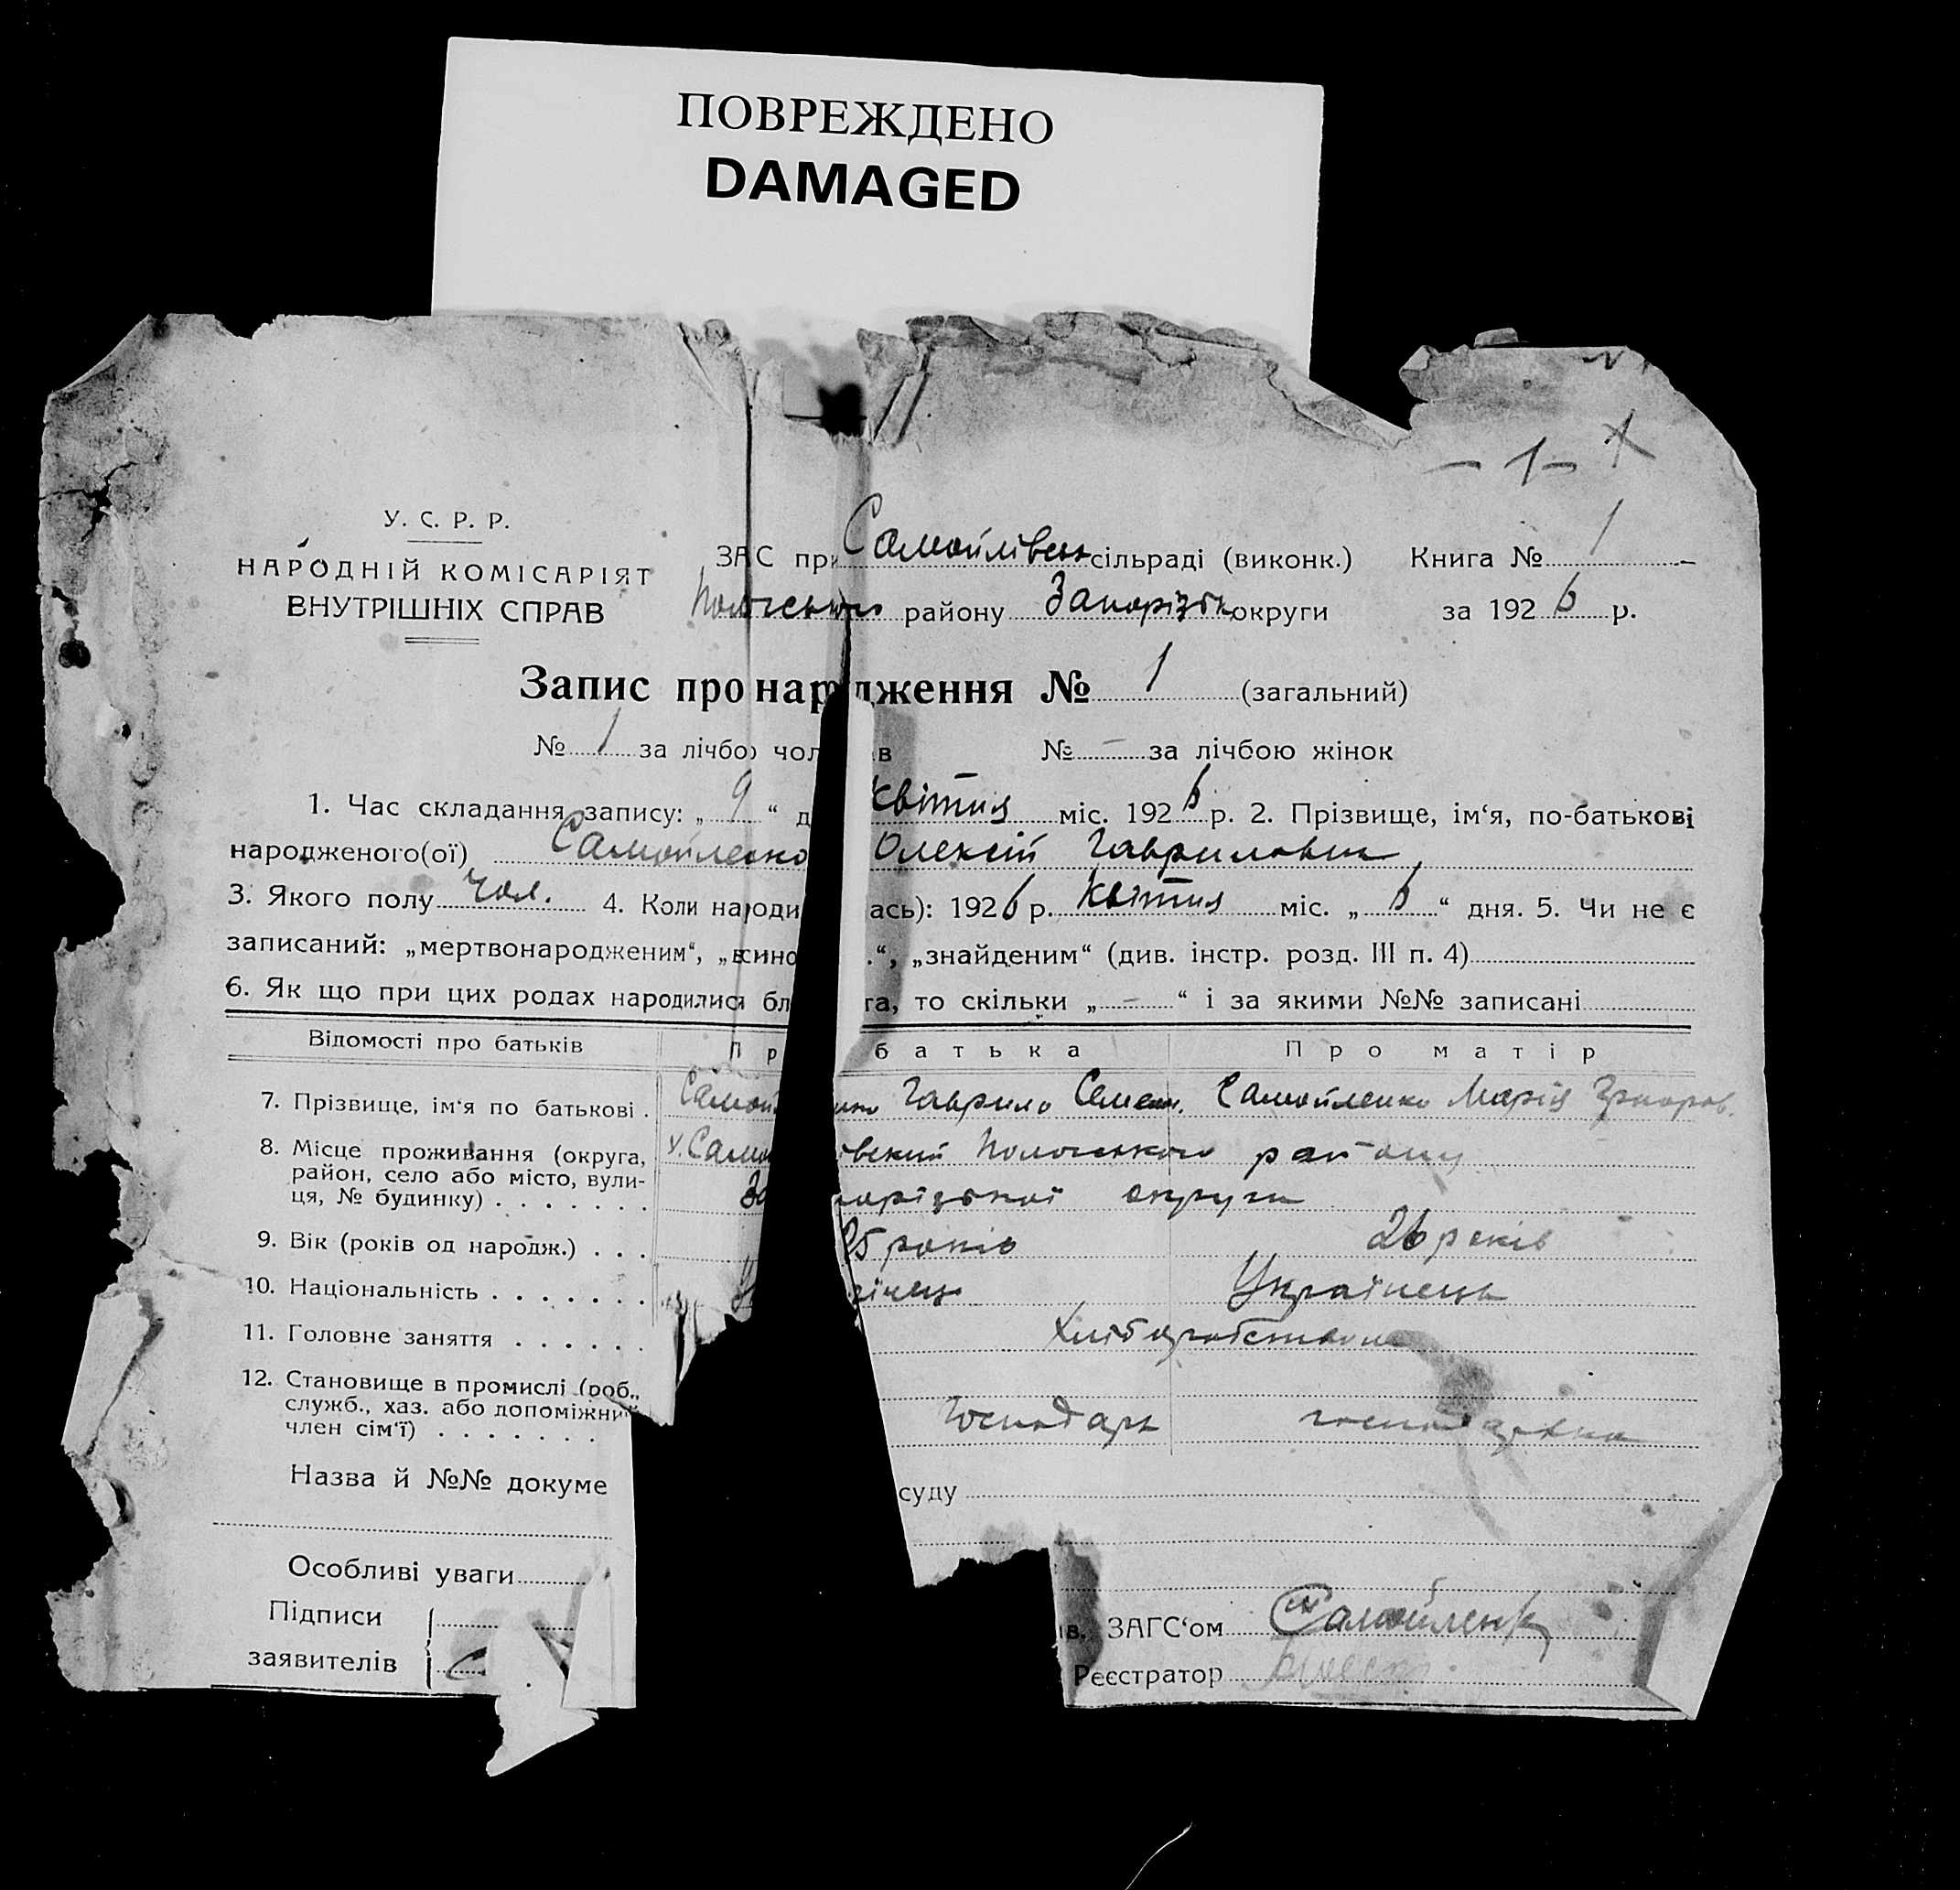 ПОВРЕЖДЕНО
DAMAGED
- 1 -
У. С. Р. Р.
НАРОДНІЙ КОМІСАРІЯТ
ВНУТРІШНІХ СПРАВ
ЗАС при Самойлівськ сільраді (виконк.) Книга № 1
району Запорізьк округи за 1926 р.
Запис про народження № 1 (загальний)
№ 1 за лічбою чол в № - за лічбою жінок
1. Час складання запису: „ 9 “ д Квітня міс. 1926 р. 2. Прізвище, ім‘я, по-батькові
народженого(ої) Самойленко Олексій Гаврилович
3. Якого полу чол. 4. Коли народи ась): 1926 р. Квітня міс. „ 6 “ дня. 5. Чи не є
записаний: „мертвонародженим“, „всино .“, „знайденим“ (див. інстр. розд. III п. 4)
6. Як що при цих родах народилися бл та, то скільки „ - “ і за якими №№ записані
Відомості про батьків Пр батька Про матір
7. Прізвище, ім‘я по батькові . Самой енко Гаврило Семен. Самойленко Марія Григоров.
8. Місце проживання (округа, х. Само івский Пологського району
район, село або місто, вули-
ця, № будинку) . . . . . . . За порізької округи
9. Вік (років од народж.) . . . 25 років 26 років
10. Національність . . . . . . . У аїнець Українець
11. Головне заняття . . . . . . Хліборобством
12. Становище в промислі (роб.,
служб., хаз. або допоміжний
член сім‘ї) . . . . . . . Господарь господарка
Назва й №№ докуме суду
Особливі уваги
Підписи
заявителів
в. ЗАГС‘ом Самойленко
Реєстратор